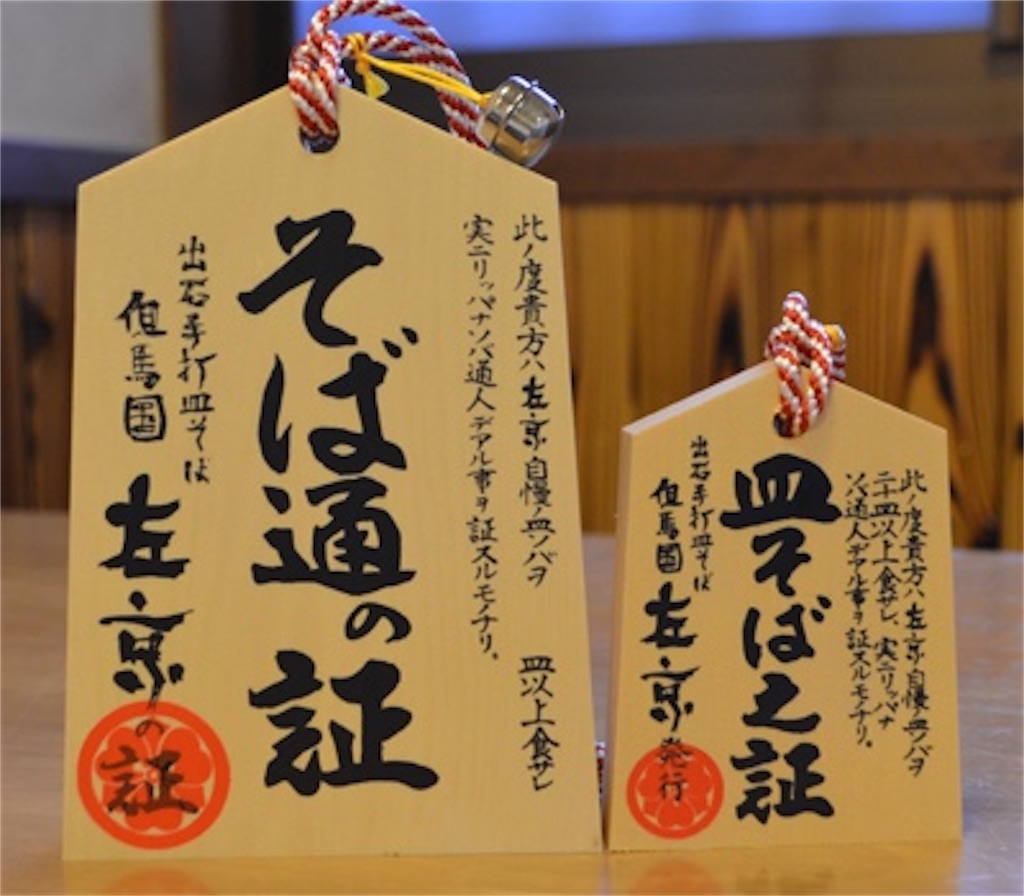 此ノ度貴方ハ左京自慢ノ皿ソバヲ 皿以上食サレ
実ニリッパナソバ通人デアル事ヲ証スルモノナリ。
そば通の証
出石手打皿そば
但馬国 左京の証
此ノ度貴方ハ左京自慢ノ皿ソバヲ
二十皿以上食サレ、実ニリッパナ
ソバ通人デアル事ヲ証スルモノナリ。
皿そば之証
出石手打皿そば
但馬国 左京発行